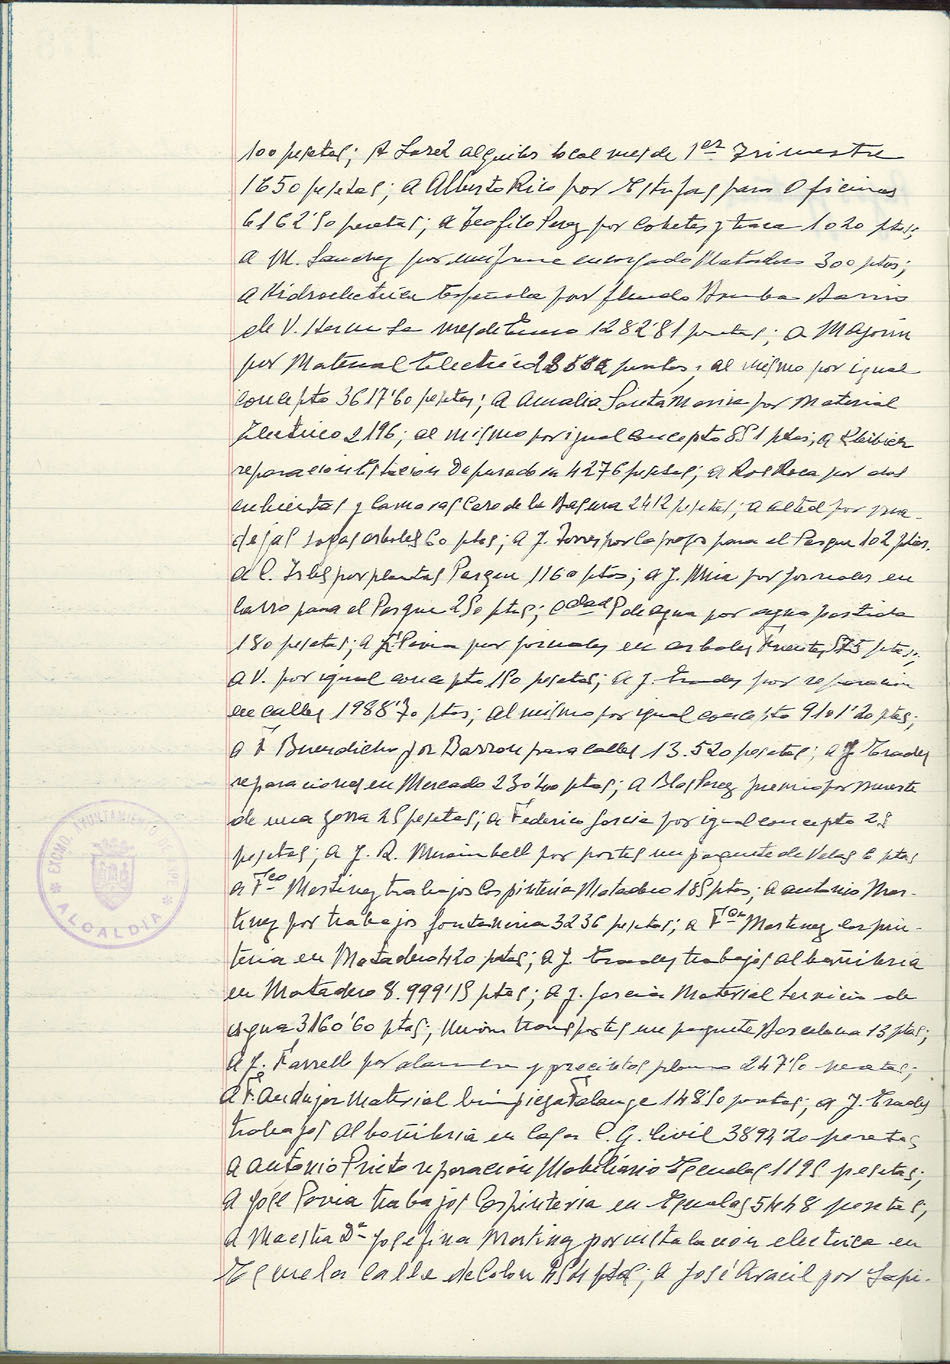 100 pesetas; A Saret alquiler local mes de 1er Trimestre
1650 pesetas; a Alberto Rico por Estufas para Oficinas
6162'50 pesetas; a Teofilo Perez por cohetes y traca 1020 ptas;
a M. Sanchez por uniforme encargado Matadero 300 ptas;
a Hidroelectrica Española por fluido Bomba Barrio
de V. mes de Enero 1282'81 pesetas; a Mayorin
por Material Electrico pesetas; al mismo por igual
concepto 3617'60 pesetas; a Amalia Santa Maria por Material
Electrico 2196; al mismo por igual concepto 851 ptas; a
reparación Estación Depuradora 4276 pesetas; a Ros Roca por dos
cubiertas y camaras Caro de la Basura 2412 pesetas; a Alted por ma-
dejas sogas arboles 60 ptas; a J. Torres por para el Parque 102 ptas.
a C. Isles por plantas Parque 1160 ptas; a J. Mira por jornales en
carro para el Parque 250 ptas; de agua por agua partida
180 pesetas; a por jornales en arboles Fuentes 575 ptas;
a V. por igual concepto 150 pesetas; a J. por reparacion
en calles 1988'70 ptas; al mismo por igual concepto 9101'20 ptas;
a Fº Buendicho por Barron para calles 13.520 pesetas; a J.
reparaciones en Mercado 230'40 ptas; a Blas Perez premio por muerte
de una zorra 25 pesetas; a Federico Garcia por igual concepto 25
pesetas; a J. R. Mirambell por portes un paquete de Velas 6 ptas
a Fco Martinez trabajos Carpinteria Matadero 185 ptas; a Antonio Mar-
tinez por trabajos fontaneria 3236 pesetas; a Fco Martinez carpin-
teria en Matadero 420 ptas; a J. trabajos albañileria
en Matadero 8.999'15 ptas; a J. Garcia Material Servicio de
agua 3160'60 ptas; Union transportes un paquete Barcelona 13 ptas;
a J. Farrell por alambre y precintos plomo 247'50 pesetas;
a Fº Andujar Material limpieza Falange 148'50 pesetas; a J.
trabajos albañileria en Casa C. G. Civil 3894'20 pesetas
a Antonio Prieto reparación Mobiliario Escuelas 1195 pesetas;
a José Pavia trabajos Carpinteria en Escuelas 5448 pesetas;
a Maestra Dª Josefina Martinez por instalacion electrica en
Escuela calle de Colon ptas; a José Aracil por Lapi-
EXCMO. AYUNTAMIENTO DE
ALCALDIA